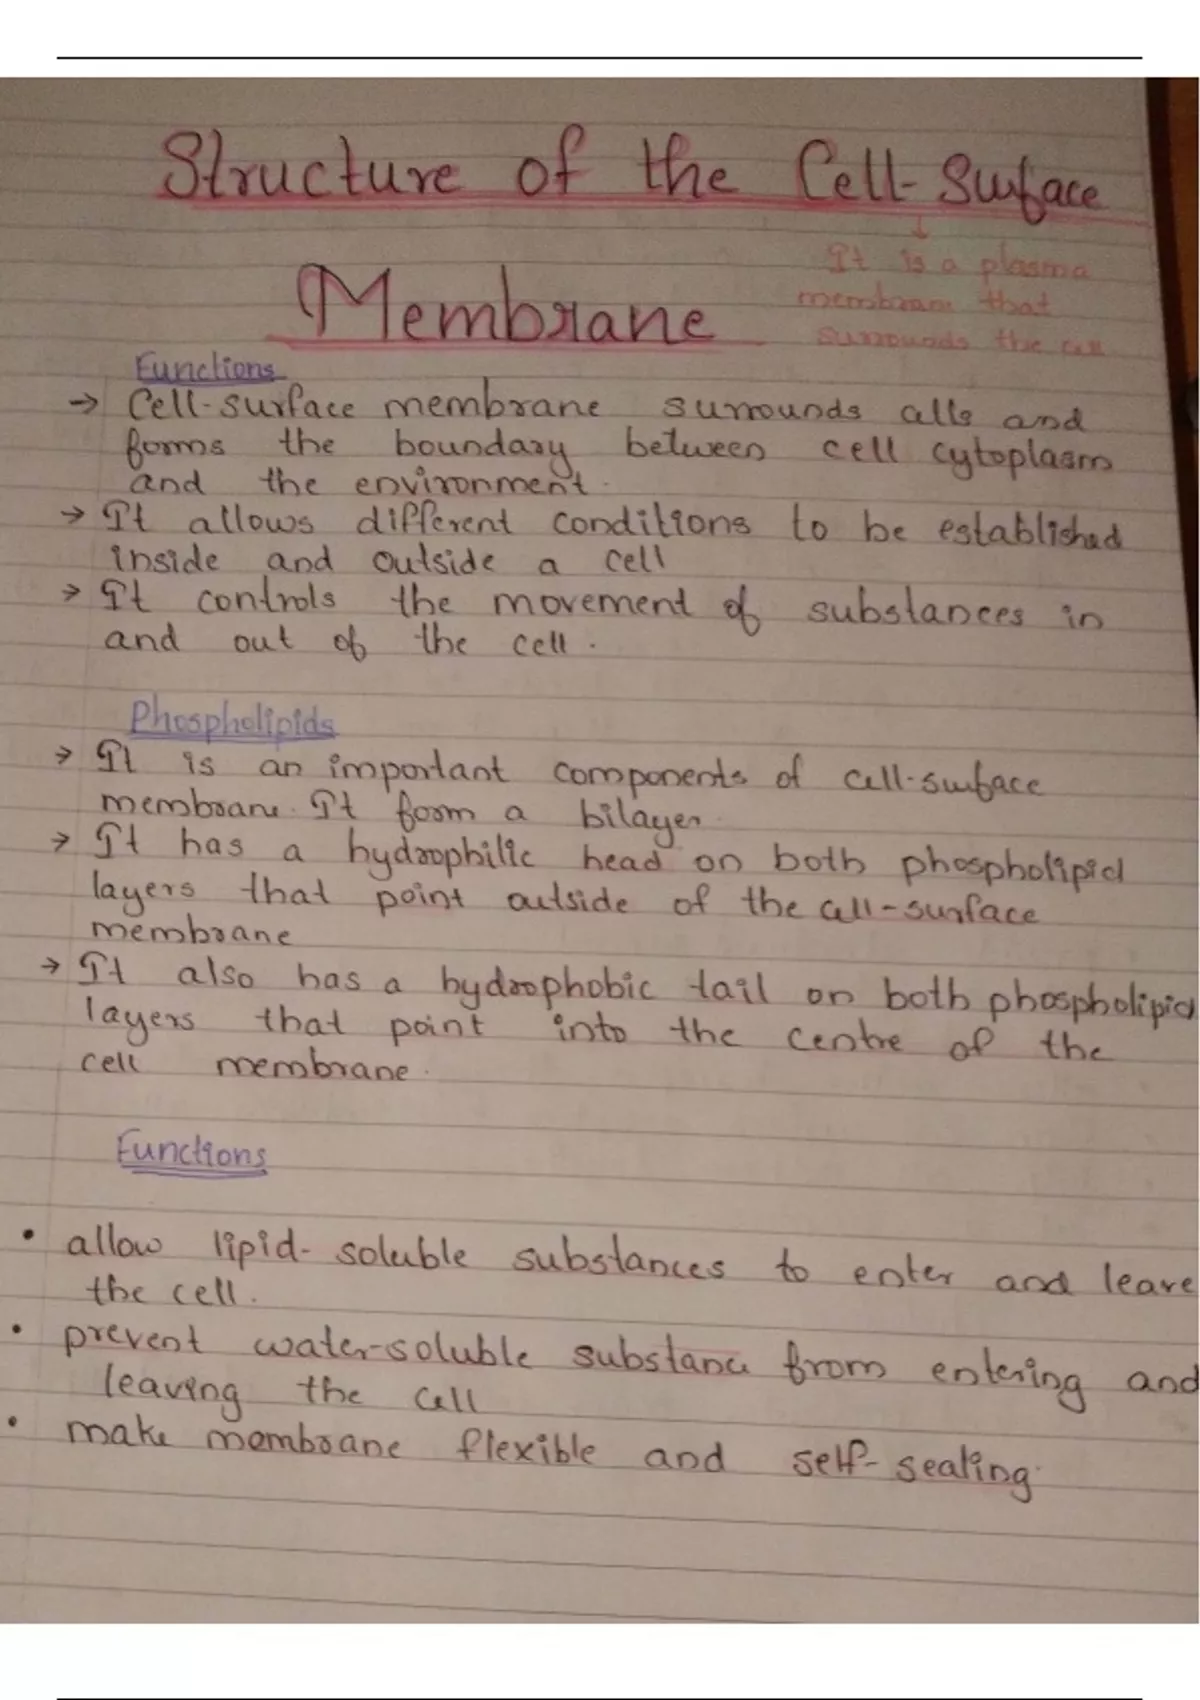 Structure of the Cell-Surface
It is a plasma
membrane that
surrounds the cell
Membrane
Functions
→ Cell-surface membrane surrounds cells and
forms the boundary between cell cytoplasm
and the environment.
→ It allows different conditions to be established
inside and outside a cell
→ It controls the movement of substances in
and out of the cell.
Phospholipids
→ It is an important components of cell-surface
membrane. It form a bilayer.
→ It has a hydrophilic head on both phospholipid
layers that point outside of the cell-surface
membrane
→ It also has a hydrophobic tail on both phospholipid
layers that point into the centre of the
cell membrane.
Functions
• allow lipid-soluble substances to enter and leave
the cell.
• prevent water-soluble substance from entering and
leaving the cell
• make membrane flexible and self-sealing.